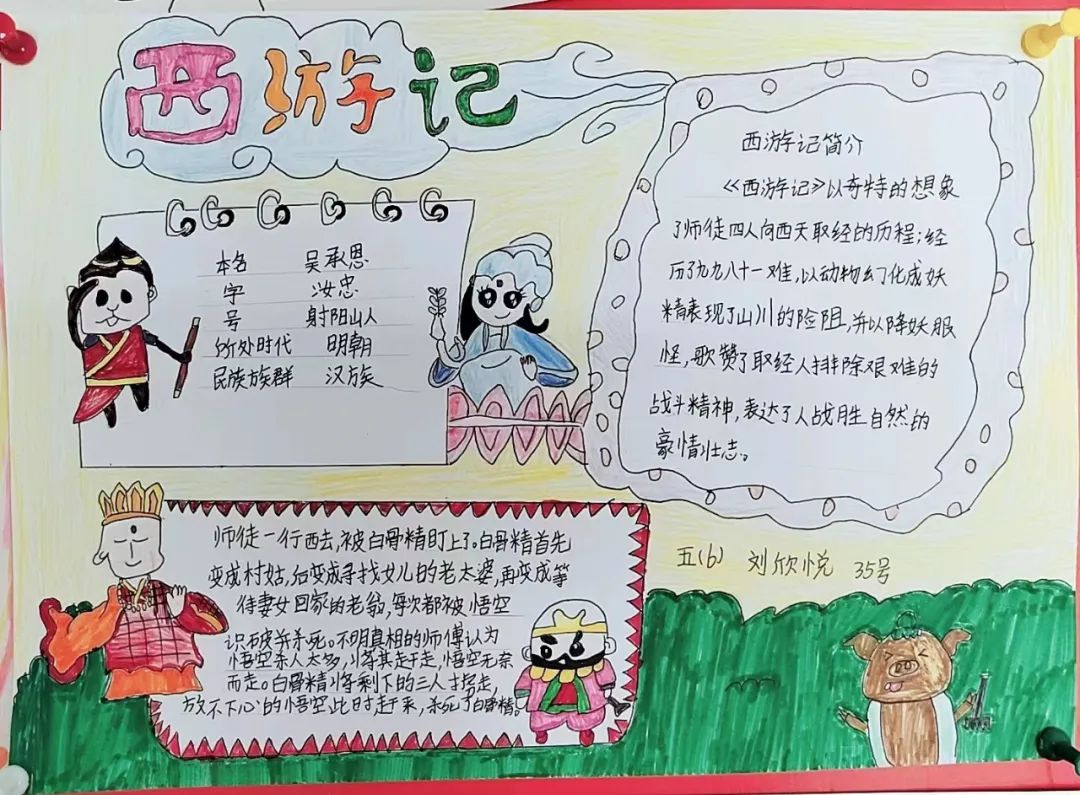 西游记
本名 吴承恩
字 汝忠
号 射阳山人
所处时代 明朝
民族族群 汉族
西游记简介
《西游记》以奇特的想象
了师徒四人向西天取经的历程;经
历了九九八十一难,以动物幻化成妖
精表现了山川的险阻,并以降妖服
怪,歌赞了取经人排除艰难的
战斗精神,表达了人战胜自然的
豪情壮志。
师徒一行西去,被白骨精盯上了。白骨精首先
变成村姑,后变成寻找女儿的老太婆,再变成等
待妻女回家的老翁,每次都被悟空
识破并杀死。不明真相的师傅认为
悟空杀人太多,将其赶走,悟空无奈
而走。白骨精将剩下的三人捉走,
放不下心的悟空此时赶来,杀死了白骨精。
五(6) 刘欣悦 35号